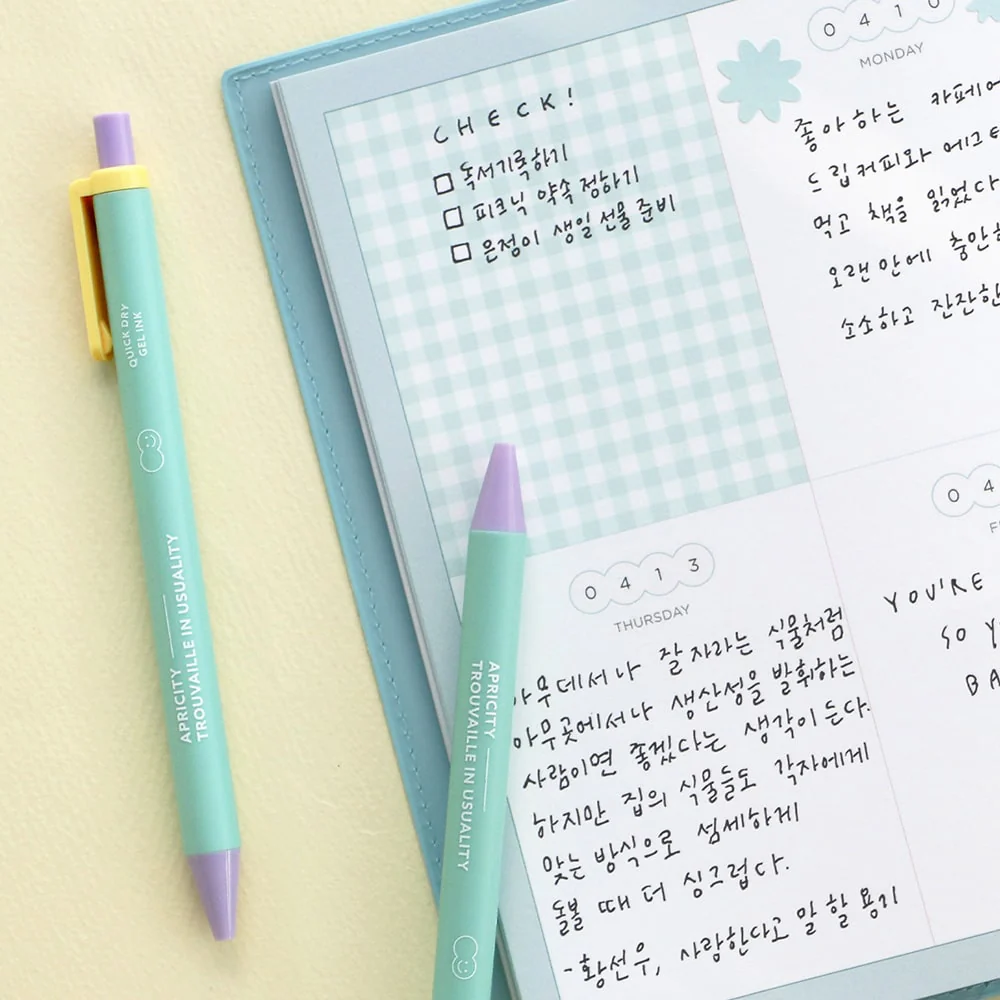 CHECK!
□ 독서기록하기
□ 피크닉 약속 정하기
□ 은정이 생일 선물 준비
0410
MONDAY
좋아하는 카페에
드립커피와 에그
먹고 책을 읽었다
오랜만에
소소하고 잔잔한
0413
THURSDAY
아무데서나 잘 자라는 식물처럼
아무곳에서나 생산성을 발휘하는
사람이면 좋겠다는 생각이 든다.
하지만 집의 식물들도 각자에게
맞는 방식으로 섬세하게
돌볼 때 더 싱그럽다.
-황선우, 사랑한다고 말 할 용기
04
YOU'RE
SO
QUICK DRY
GEL INK
APRICITY
TROUVAILLE IN USUALITY
APRICITY
TROUVAILLE IN USUALITY